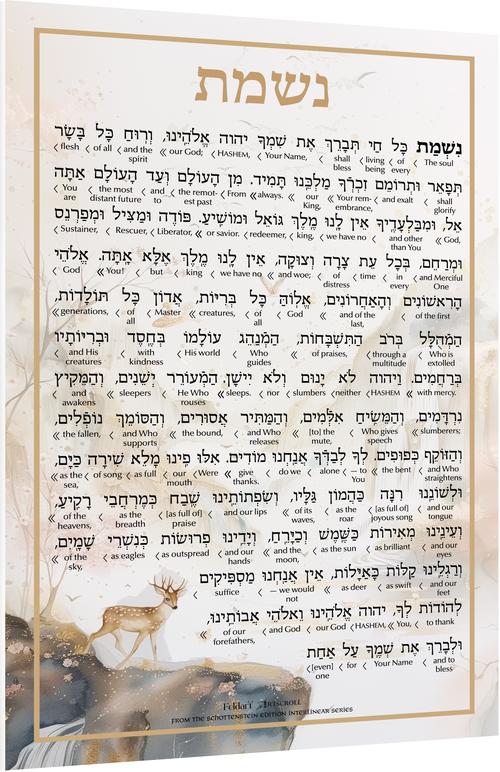 נשמת
נִשְׁמַת כָּל חַי תְּבָרֵךְ אֶת שִׁמְךָ יהוה אֱלֹהֵינוּ, וְרוּחַ כָּל בָּשָׂר
The soul ‹ of every ‹ living being ‹ shall bless ‹ Your Name, ‹ HASHEM, ‹ our God; « and the spirit ‹ of all ‹ flesh ‹
תְּפָאֵר וּתְרוֹמֵם זִכְרְךָ מַלְכֵּנוּ תָּמִיד. מִן הָעוֹלָם וְעַד הָעוֹלָם אַתָּה
shall glorify ‹ and exalt ‹ Your remembrance, ‹ our King, « always. « From ‹ the remotest past ‹ and to ‹ the most distant future ‹ You are ‹
אֵל, וּמִבַּלְעָדֶיךָ אֵין לָנוּ מֶלֶךְ גּוֹאֵל וּמוֹשִׁיעַ. פּוֹדֶה וּמַצִּיל וּמְפַרְנֵס
God, « and other than You ‹ we have no ‹ king, ‹ redeemer, ‹ or savior. « Liberator, ‹ Rescuer, ‹ Sustainer, ‹
וּמְרַחֵם, בְּכָל עֵת צָרָה וְצוּקָה, אֵין לָנוּ מֶלֶךְ אֶלָּא אָתָּה. אֱלֹהֵי
and Merciful One ‹ in every ‹ time ‹ of distress ‹ and woe; « we have no ‹ king ‹ but ‹ You! « God ‹
הָרִאשׁוֹנִים וְהָאַחֲרוֹנִים, אֱלוֹהַּ כָּל בְּרִיּוֹת, אֲדוֹן כָּל תּוֹלָדוֹת,
of the first ‹ and of the last, « God ‹ of all ‹ creatures, « Master ‹ of all ‹ generations, «
הַמְהֻלָּל בְּרֹב הַתִּשְׁבָּחוֹת, הַמְנַהֵג עוֹלָמוֹ בְּחֶסֶד וּבְרִיּוֹתָיו
Who is extolled ‹ through a multitude ‹ of praises, « Who guides ‹ His world ‹ with kindness ‹ and His creatures ‹
בְּרַחֲמִים. וַיהוה לֹא יָנוּם וְלֹא יִישָׁן. הַמְעוֹרֵר יְשֵׁנִים, וְהַמֵּקִיץ
with mercy. « HASHEM ‹ neither ‹ slumbers ‹ nor ‹ sleeps. « He Who rouses ‹ sleepers ‹ and awakens ‹
נִרְדָּמִים, וְהַמֵּשִׂיחַ אִלְּמִים, וְהַמַּתִּיר אֲסוּרִים, וְהַסּוֹמֵךְ נוֹפְלִים,
slumberers; « Who gives speech ‹ [to] the mute, ‹ and Who releases ‹ the bound, ‹ and Who supports ‹ the fallen, «
וְהַזּוֹקֵף כְּפוּפִים. לְךָ לְבַדְּךָ אֲנַחְנוּ מוֹדִים. אִלּוּ פִינוּ מָלֵא שִׁירָה כַּיָּם,
and Who straightens ‹ the bent « — to You ‹ alone ‹ do we ‹ give thanks. « Were ‹ our mouth ‹ as full ‹ of song ‹ as the sea, «
וּלְשׁוֹנֵנוּ רִנָּה כַּהֲמוֹן גַּלָּיו, וְשִׂפְתוֹתֵינוּ שֶׁבַח כְּמֶרְחֲבֵי רָקִיעַ,
and our tongue ‹ [as full of] joyous song ‹ as the roar ‹ of its waves, « and our lips ‹ [as full of] praise ‹ as the breadth ‹ of the heavens, «
וְעֵינֵינוּ מְאִירוֹת כַּשֶּׁמֶשׁ וְכַיָּרֵחַ, וְיָדֵינוּ פְרוּשׂוֹת כְּנִשְׁרֵי שָׁמָיִם,
and our eyes ‹ as brilliant ‹ as the sun ‹ and the moon, « and our hands ‹ as outspread ‹ as eagles ‹ of the sky, «
וְרַגְלֵינוּ קַלּוֹת כָּאַיָּלוֹת, אֵין אֲנַחְנוּ מַסְפִּיקִים
and our feet ‹ as swift ‹ as deer « — we would not ‹ suffice ‹
לְהוֹדוֹת לְךָ, יהוה אֱלֹהֵינוּ וֵאלֹהֵי אֲבוֹתֵינוּ,
to thank ‹ You, « HASHEM, ‹ our God ‹ and God ‹ of our forefathers, «
וּלְבָרֵךְ אֶת שְׁמֶךָ עַל אַחַת
and to bless ‹ Your Name ‹ for ‹ [even] one ‹
Feldart ARTSCROLL
FROM THE SCHOTTENSTEIN EDITION INTERLINEAR SERIES